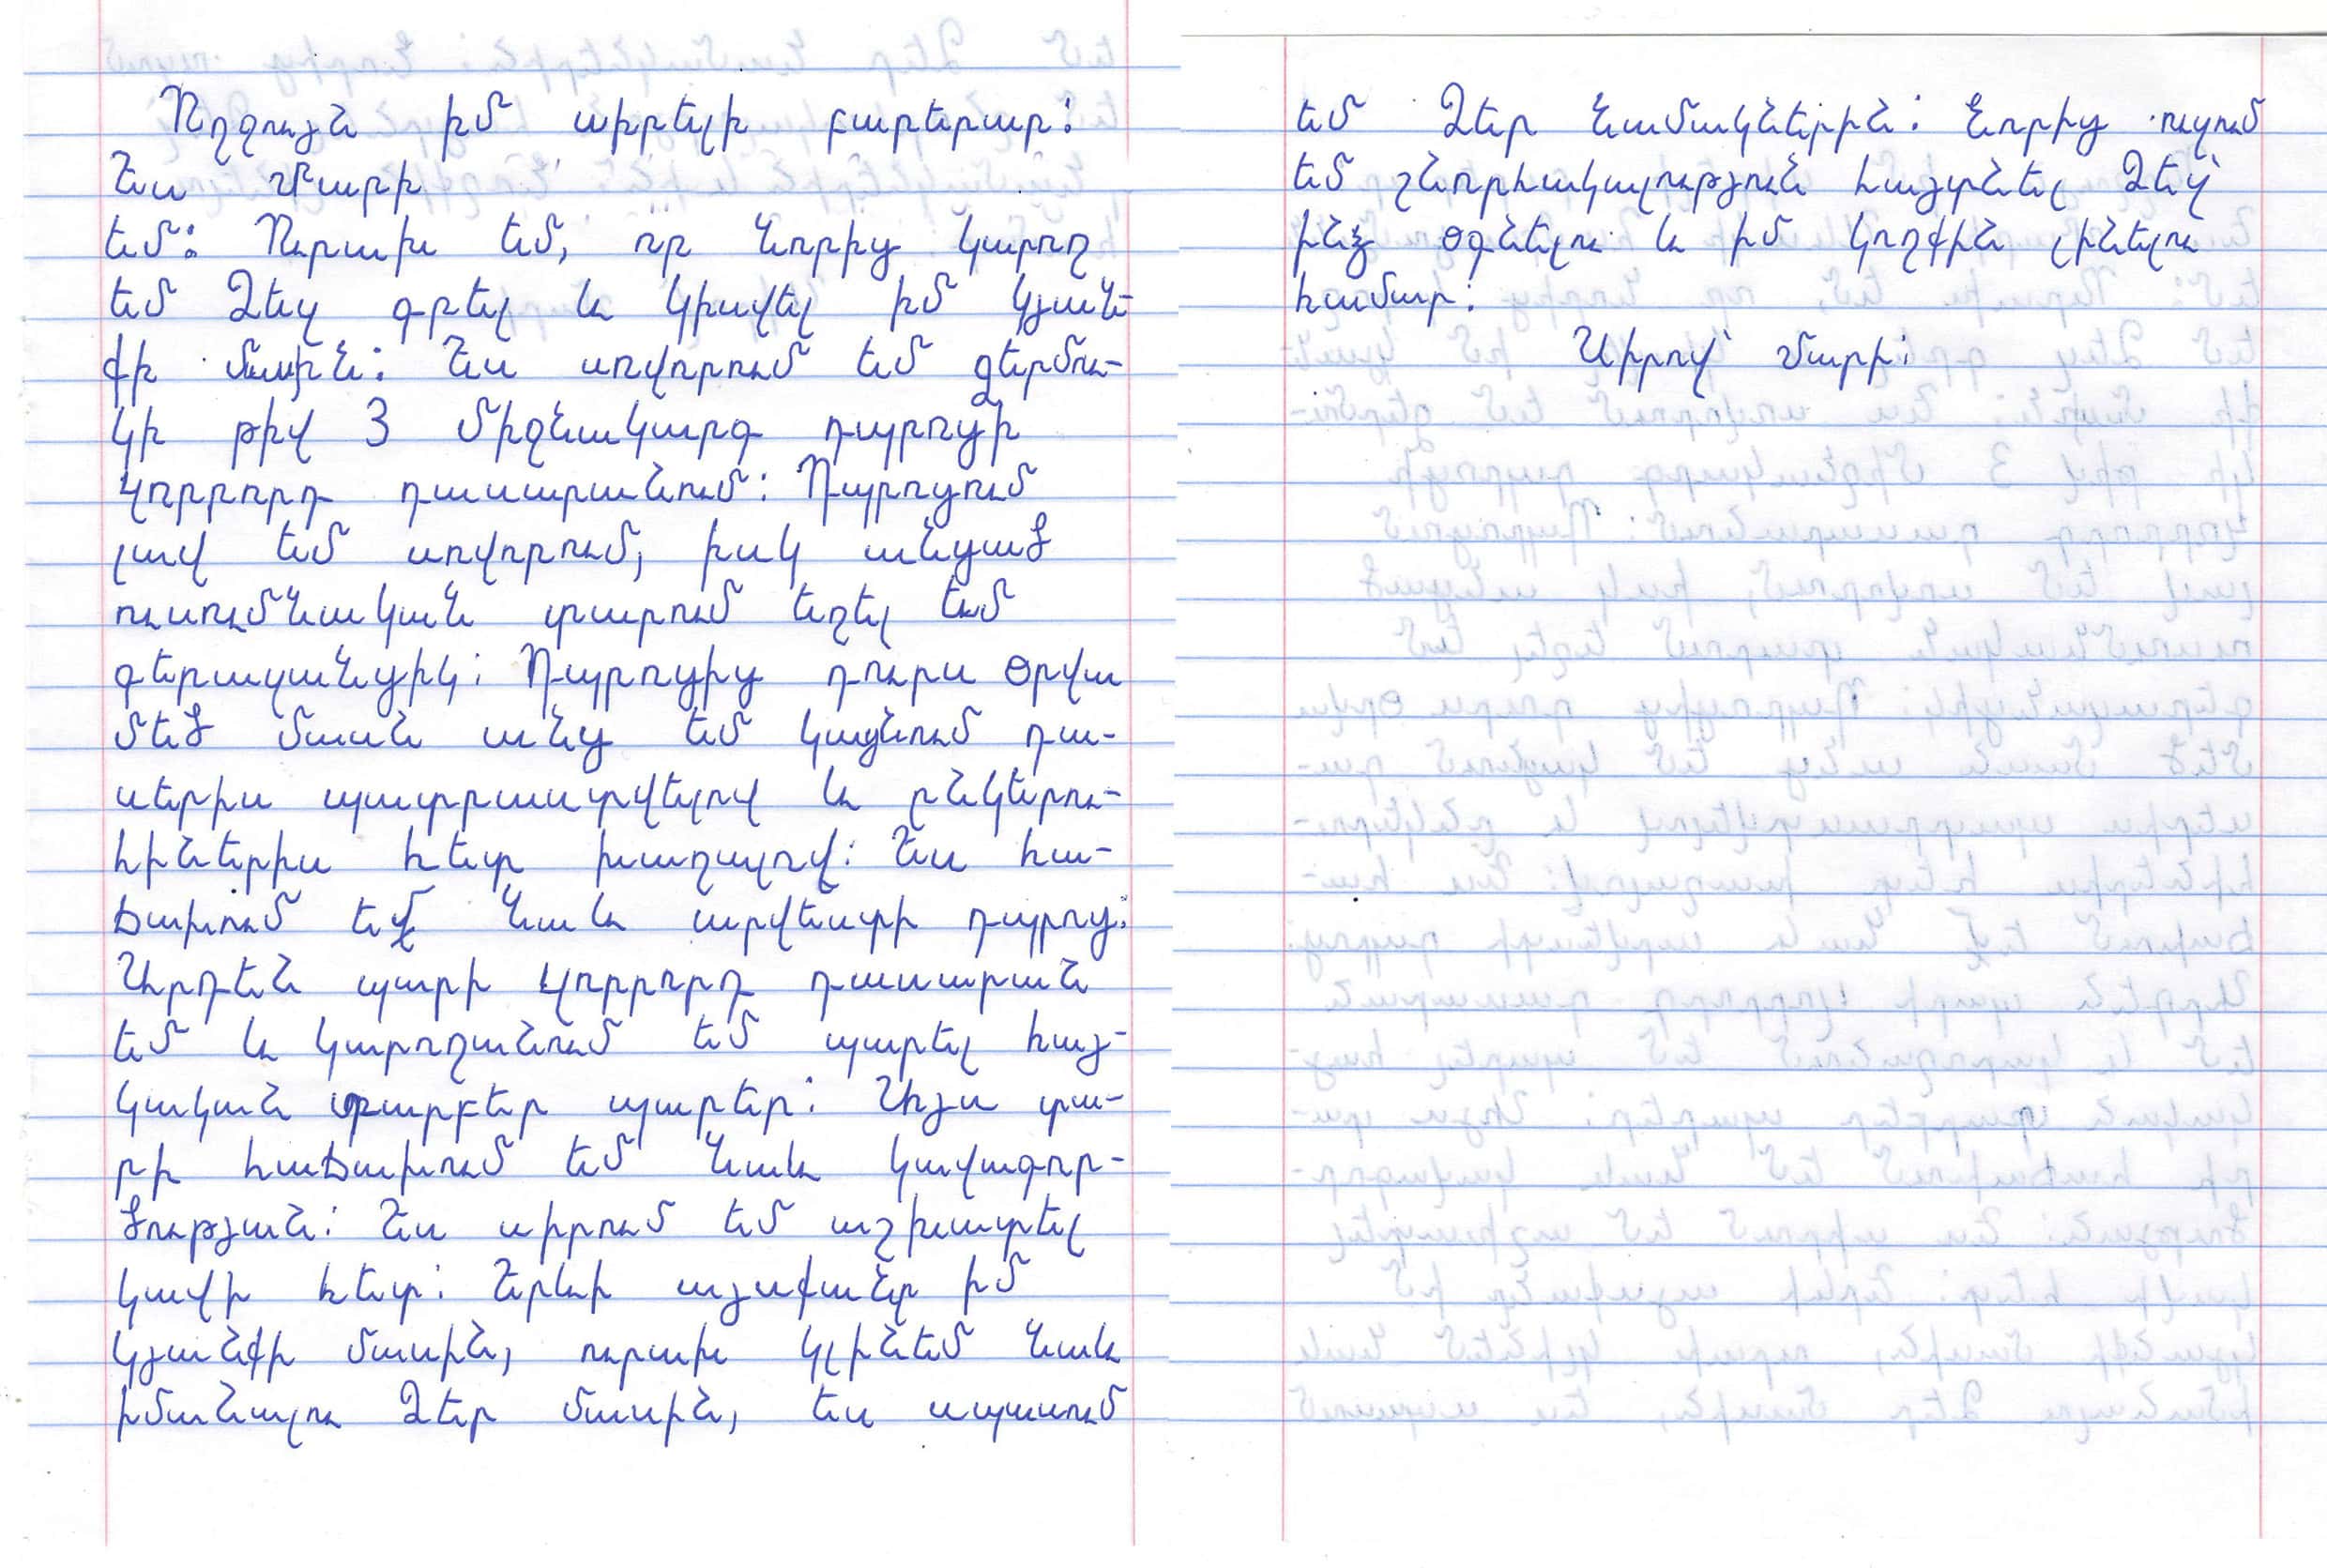 Ողջույն իմ սիրելի բարերար:
Ես Մարի
եմ: Ուրախ եմ, որ նորից կարող
եմ Ձեզ գրել և կիսվել իմ կյան-
քի մասին: Ես սովորում եմ Ջերմու-
կի թիվ 3 միջնակարգ դպրոցի
չորրորդ դասարանում: Դպրոցում
լավ եմ սովորում, իսկ անցած
ուսումնական տարում եղել եմ
գերազանցիկ: Դպրոցից դուրս օրվա
մեծ մասն անց եմ կացնում դա-
սերիս պատրաստվելով և ընկերու-
հիներիս հետ խաղալով: Ես հա-
ճախում եմ նաև արվեստի դպրոց:
Արդեն պարի չորրորդ դասարան
եմ և կարողանում եմ պարել հայ-
կական տարբեր պարեր: Այս տա-
րի հաճախում եմ նաև կավագոր-
ծության: Ես սիրում եմ աշխատել
կավի հետ: Երևի այսքանը իմ
կյանքի մասին, ուրախ կլինեմ նաև
իմանալու Ձեր մասին, ես սպասում
եմ Ձեր նամակներին: Նորից ուզում
եմ շնորհակալություն հայտնել Ձեզ՝
ինձ օգնելու և իմ կողքին լինելու
համար:
Սիրով՝ Մարի: